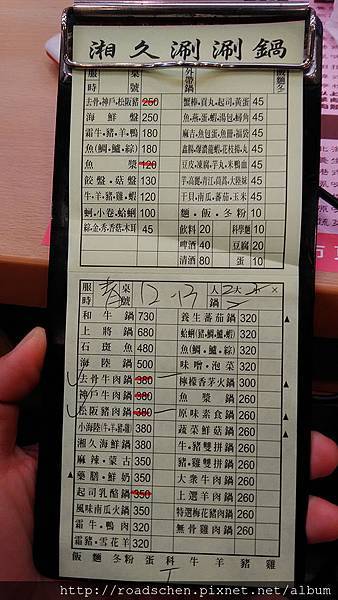 湘久涮涮鍋
服時 桌號 外帶鍋 飯麵多
去骨•神戶•松阪豬 250 蟹棒•貢丸•起司•黃蛋 45
海鮮盤 250 45
霜牛•豬•羊•鴨 180 45
魚(鯛•鱸•綜) 180 45
魚漿 120 45
餃盤•菇盤 130 豆皮•凍腐•芋丸•米鴨血 45
牛•羊•豬•雞•蝦 120 45
蚵•小卷•蛤蜊 100 干貝•南瓜•蕃茄•玉米 45
綜•金•秀•香菇•木耳 45 麵•飯•冬粉 10
飲料 20 科學麵 10
啤酒 40 豆腐 20
清酒 80 蛋 10
服時 桌號 12.13 人鍋 2大
和牛鍋 730 養生蕃茄鍋 320
上將鍋 680 蛤蜊(豬•鯛•鱸•蝦) 320
石斑魚 480 魚(鯛•鱸•綜) 320
海陸鍋 500 味噌•泡菜 320
去骨牛肉鍋 380 檸檬香茅火鍋 300
神戶牛肉鍋 380 魚漿鍋 260
松阪豬肉鍋 380 原味素食鍋 260
小海陸(牛•羊•豬•雞) 380 蔬菜鮮菇鍋 260
湘久海鮮鍋 380 牛•豬雙拼鍋 260
麻辣•蒙古 350 豬•雞雙拼鍋 260
藥膳•鮮奶 350 大眾牛肉鍋 260
起司乳酪鍋 350 上選羊肉鍋 260
風味南瓜火鍋 320 特選梅花豬肉鍋 260
霜牛•鴨肉 320 無骨雞肉鍋 260
霜豬•雪花羊 320
飯 麵 冬粉 蛋 科 牛 羊 豬 雞
http://roadschen.pixnet.net/album